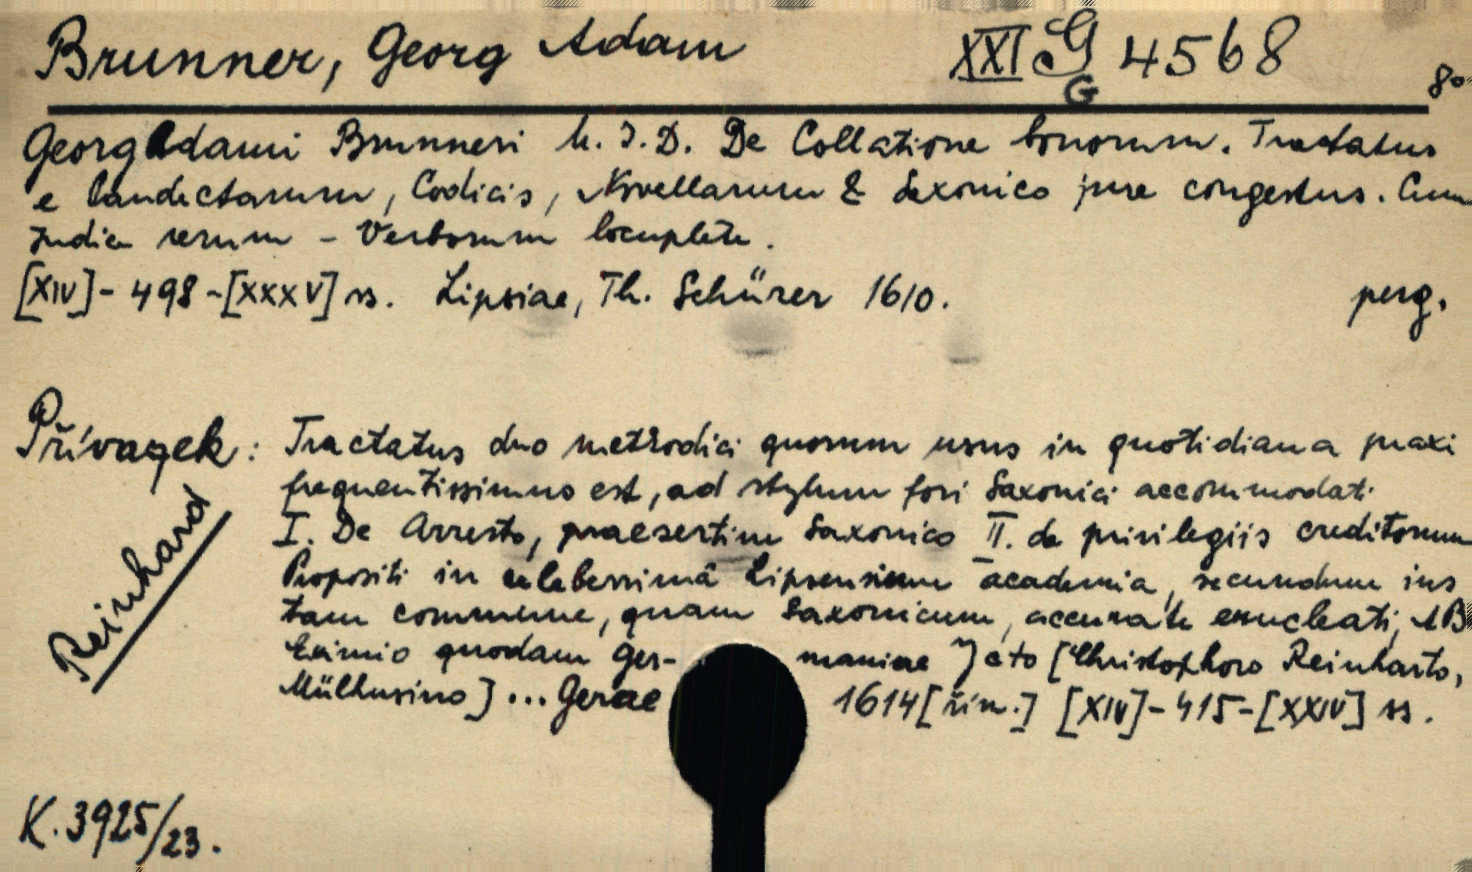 Brunner, Georg Adam XXI G 4568
G
8°
Georg Adami Brunneri U. J. D. De Collatione bonorum. Tractatus
e Pandectarum, Codicis, Novellarum & Saxonico jure congestus. Cum
Indice rerum - Verborum locuplete.
[XIV]- 498 -[XXXV] ss. Lipsiae, Th. Schürer 1610. perg.
Přívazek: Tractatus duo methodici quorum usus in quotidiana praxi
frequentissimus est, ad stylum fori Saxonici accommodati
I. De Arresto, praesertim Saxonico II. de privilegiis creditorum
Propositi in celeberrimâ Lipsensium academia, secundum ius
tam commune, quam Saxonicum, accurate enucleati, AB
Eximio quodam Ger- maniae Jcto [Christophoro Reinharto,
Mülhusino] ... Gerae 1614 [řím.] [XIV]- 415-[XXIV] ss.
Reinhard
K. 3925/23.